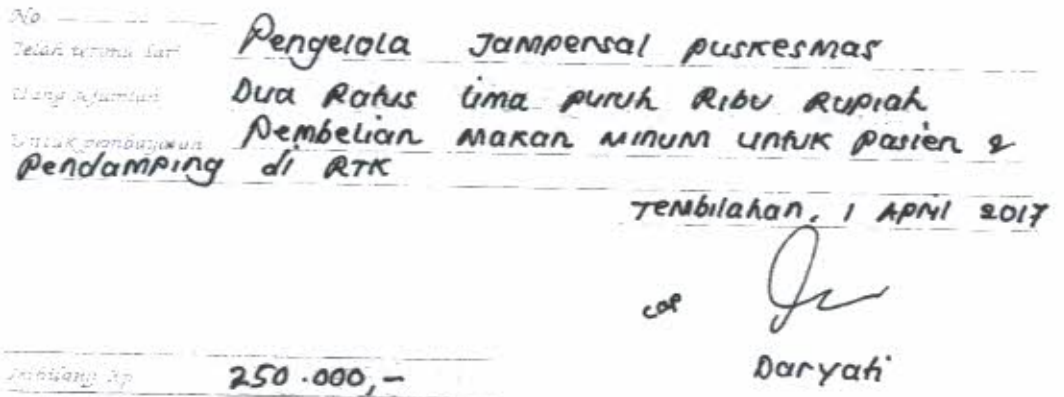 No.
Telah terima dari Pengelola Jampersal puskesmas
Uang sejumlah Dua Ratus lima puluh Ribu Rupiah
Untuk pembayaran Pembelian Makan Minum untuk pasien &
Pendamping di RTK
Tembilahan, 1 April 2017
cap
Daryati
Terbilang Rp 250.000,-